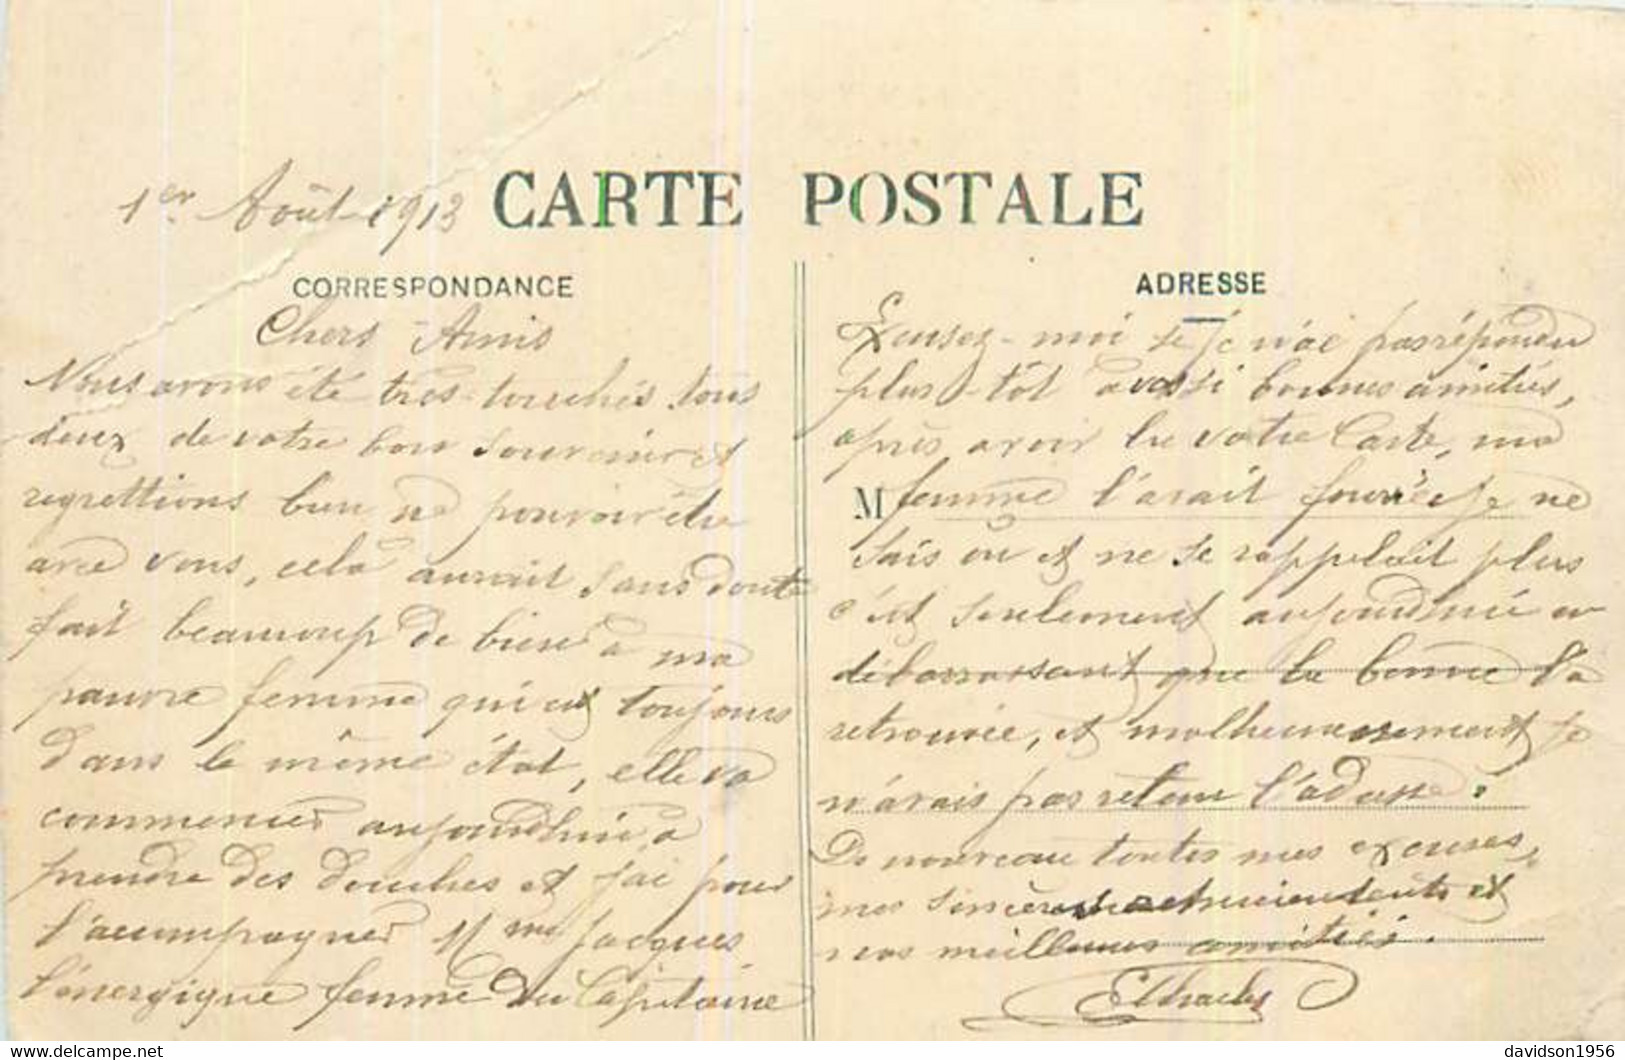 1er Août 1913
CARTE POSTALE
CORRESPONDANCE
Chers Amis
Nous avons été très touchés tous
deux de votre bon souvenir et
regrettions bien ne pouvoir être
avec vous, celà aurait sans doute
fait beaucoup de bien à ma
pauvre femme qui est toujours
dans le même état, elle va
commencer aujourdhui, a
prendre des douches et j'ai pour
l'accompagner Mme Jacques
l'énergique femme du Capitaine
ADRESSE
Excusez-moi si je n'ai pas répondu
plus-tôt a vos si bonnes amitiés,
après avoir lu votre Carte, ma
M
femme l'avait fourrée je ne
sais où et ne se rappelait plus
c'est seulement aujourdhui en
débarrassant que la bonne l'a
retrouvée, et malheureusement je
n'avais pas retenu l'adresse.
De nouveau toutes mes excuses,
mes sincères remerciements et
nos meilleures amitiés.
davidson1956